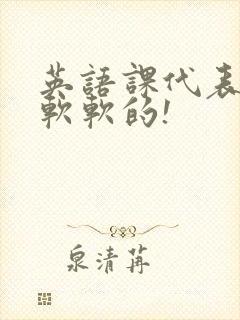 英語課代表
軟軟的!
泉清苒